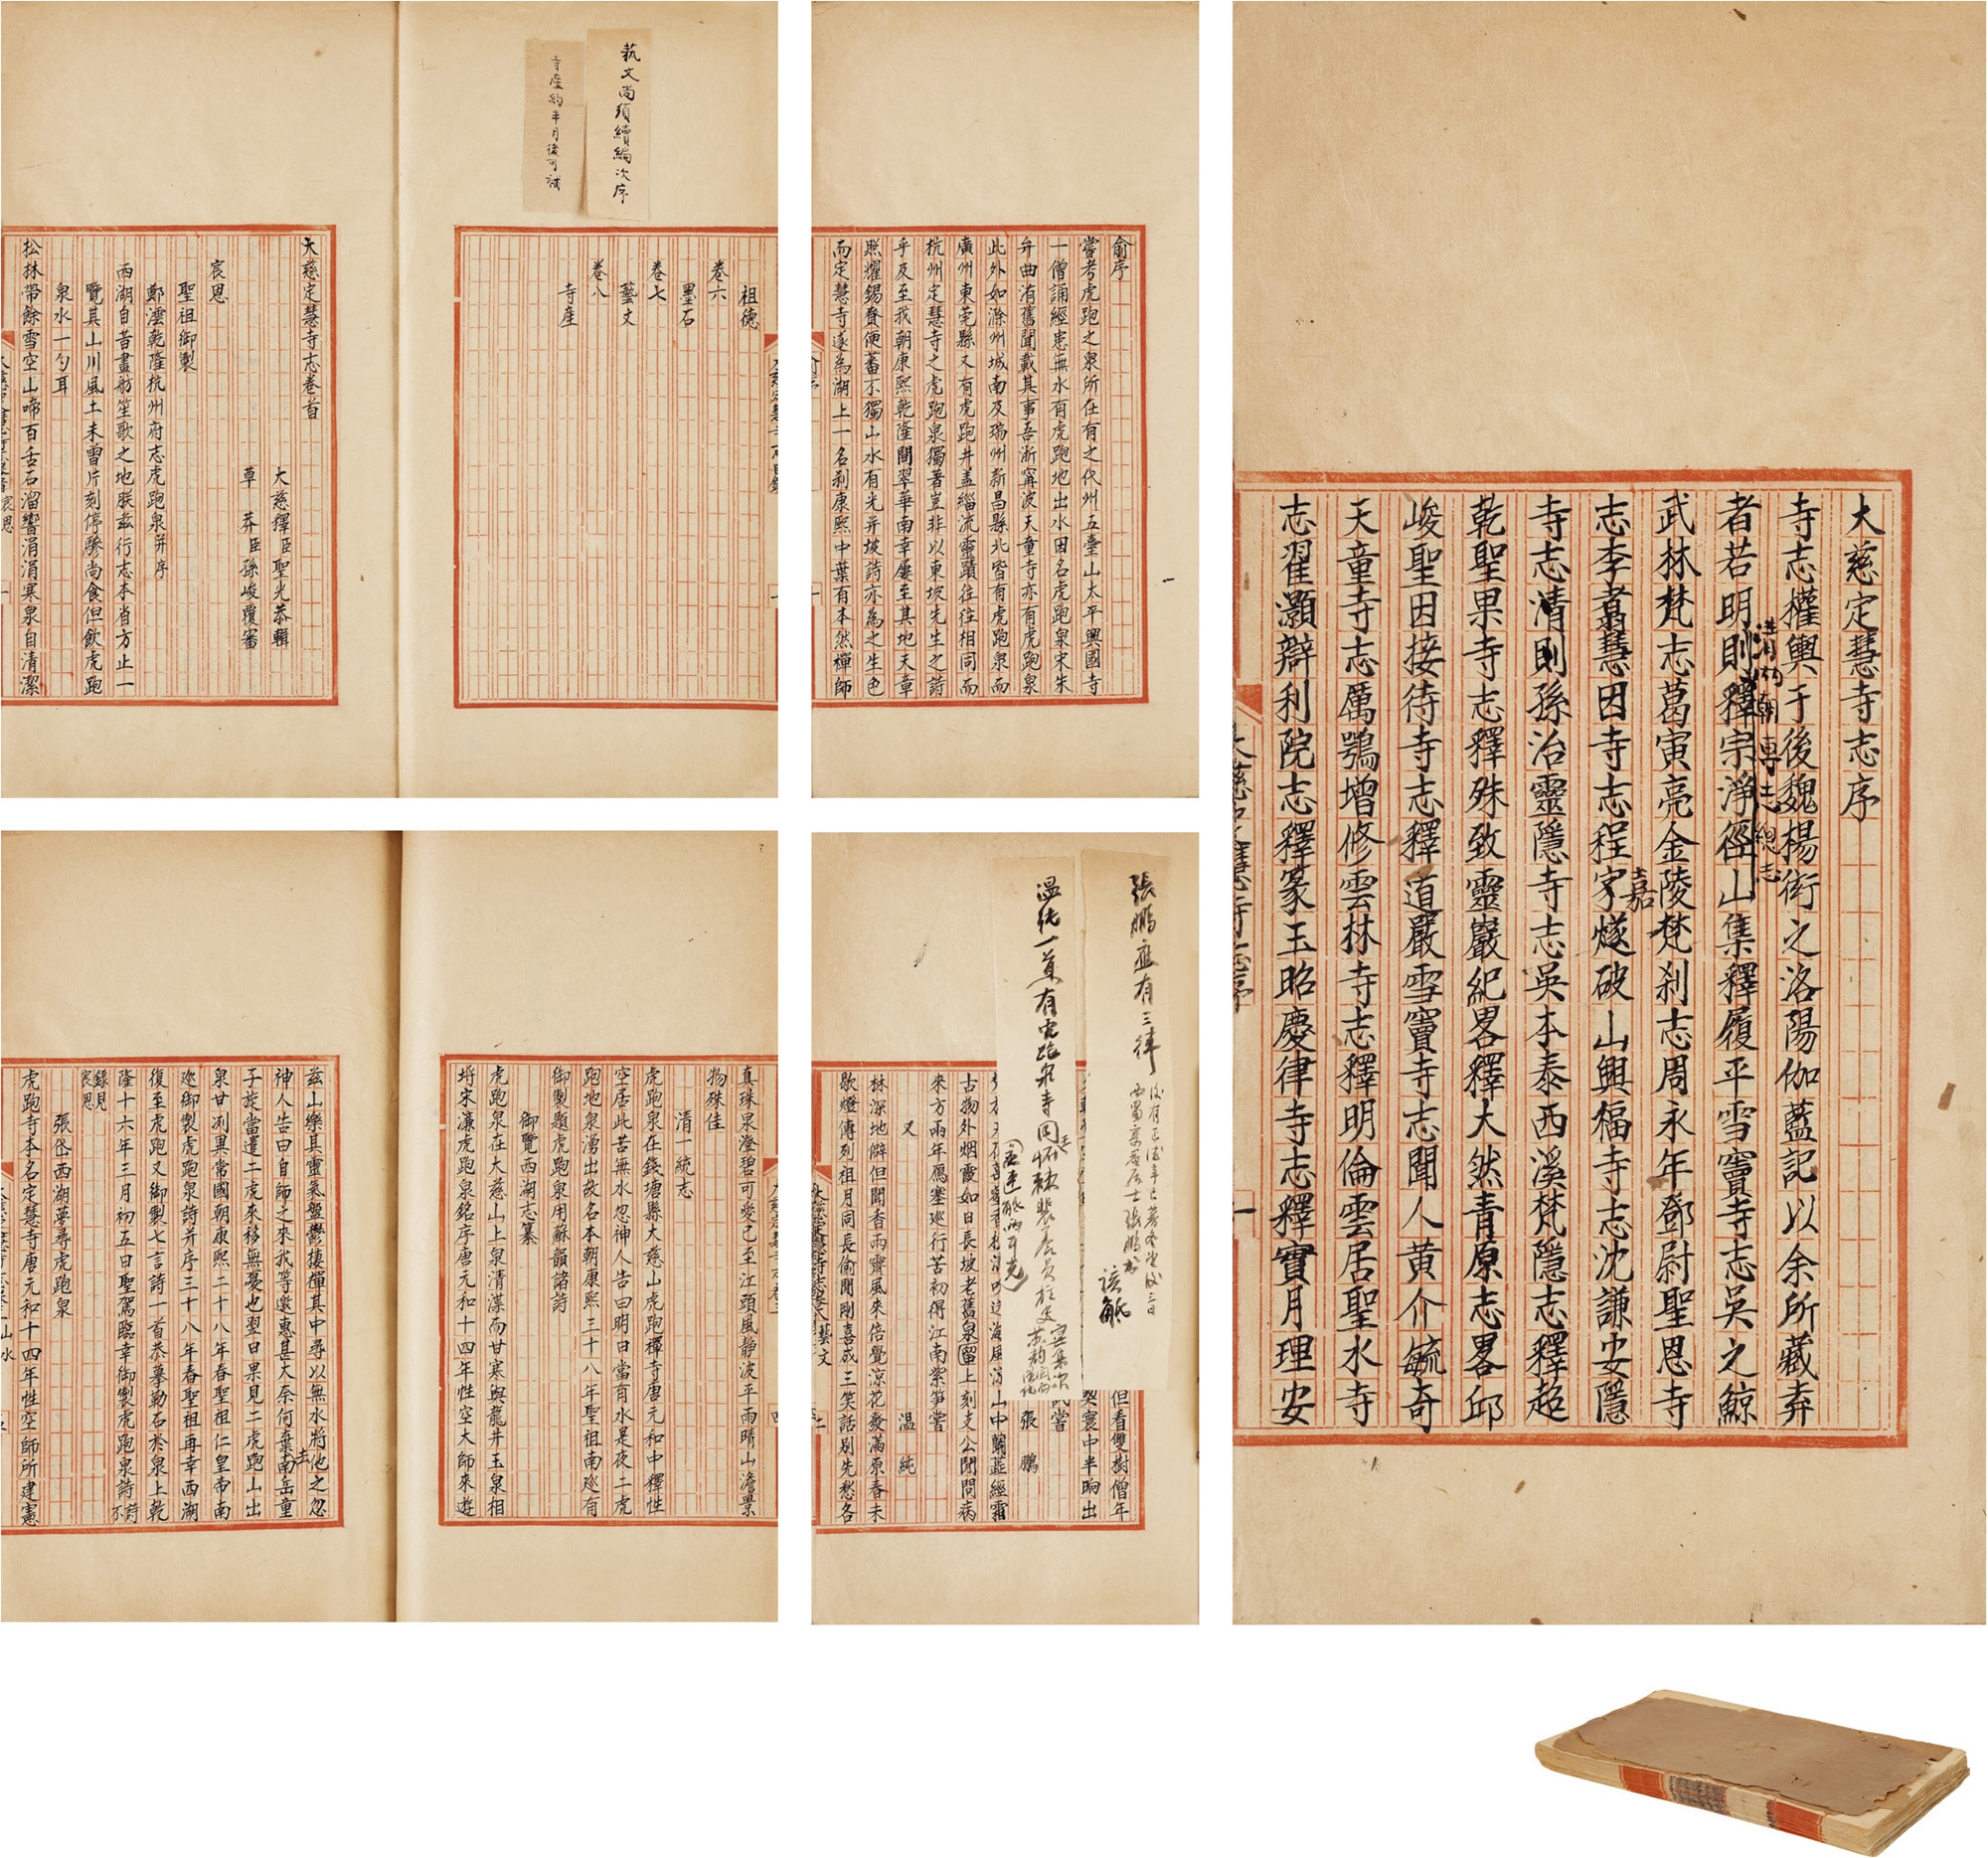 大慈定慧寺志序
寺志權輿于後魏楊衒之洛陽伽藍記以余所藏弆
者若明則釋宗淨徑山集釋履平雪竇寺志吳之鯨
武林梵志葛寅亮金陵梵刹志周永年鄧尉聖恩寺
志李翥慧因寺志程家燧破山興福寺志沈謙安隱
嘉
寺志清則孫治靈隱寺志吳本泰西溪梵隱志釋超
乾聖果寺志釋殊致靈巖紀畧釋大然青原志畧邱
峻聖因接待寺志釋道嚴雪竇寺志聞人黃介毓奇
天童寺志厲鶚增修雲林寺志釋明倫雲居聖水寺
志翟灝辯利院志釋篆玉昭慶律寺志釋實月理安
俞序
嘗考虎跑之泉所在有之代州五臺山太平興國寺
一僧誦經患無水有虎跑地出水因名虎跑泉宋朱
弁曲洧舊聞載其事吾浙甯波天童寺亦有虎跑泉
此外如滁州城南及瑞州新昌縣北皆有虎跑泉而
廣州東莞縣又有虎跑井蓋緇流靈蹟往往相同而
杭州定慧寺之虎跑泉獨著豈非以東坡先生之詩
乎及至我朝康熙乾隆間翠華南幸屢至其地天章
照燿錫賚便蕃不獨山水有光并坡詩亦為之生色
而定慧寺遂為湖上一名刹康熙中葉有本然禪師
藝文尚須續編次序
寺產約半月後可補
祖德
卷六
墨石
卷七
藝文
卷八
寺產
大慈定慧寺志卷首
大慈釋臣聖光恭輯
草莽臣孫峻覆審
宸恩
聖祖御製
鄭澐乾隆杭州府志虎跑泉并序
西湖自昔畫舫笙歌之地朕茲行志本省方止一
覽其山川風土未曾片刻停驂尚食但飲虎跑
泉水一勺耳
松林帶餘雪空山啼百舌石溜響涓涓寒泉自清潔
張鵬應有三律
溫純一首有虎跑泉寺同
但看雙樹僧年
張鵬
古物外烟霞如日長坡老舊泉留上刻支公閒問病
來方兩年鴈塞巡行苦初得江南紫筍嘗
又
溫純
林深地僻但聞香雨霽風來倍覺涼花發滿原春未
歇燈傳列祖月同長偷閒剛喜成三笑話別先愁各
真珠泉澄碧可愛已至江頭風靜波平雨晴山澹景
物殊佳
清一統志
虎跑泉在錢塘縣大慈山虎跑禪寺唐元和中釋性
空居此苦無水忽神人告曰明日當有水是夜二虎
跑地泉湧出故名本朝康熙三十八年聖祖南巡有
御製題虎跑泉用蘇韻諸詩
御覽西湖志纂
虎跑泉在大慈山上泉清深而甘寒與龍井玉泉相
埒宋濂虎跑泉銘序唐元和十四年性空大師來遊
茲山樂其靈氣盤鬱棲禪其中尋以無水將他之忽
去
神人告曰自師之來我等邀惠甚大奈何棄南岳童
子旋當遣二虎來移無憂也翌日果見二虎跑山出
泉甘冽異常國朝康熙二十八年春聖祖仁皇帝南
巡御製虎跑泉詩并序三十八年春聖祖再幸西湖
復至虎跑又御製七言詩一首恭摹勒石於泉上乾
隆十六年三月初五日聖駕臨幸御製虎跑泉詩詩不
錄見宸恩
張岱西湖夢尋虎跑泉
虎跑寺本名定慧寺唐元和十四年性空師所建憲